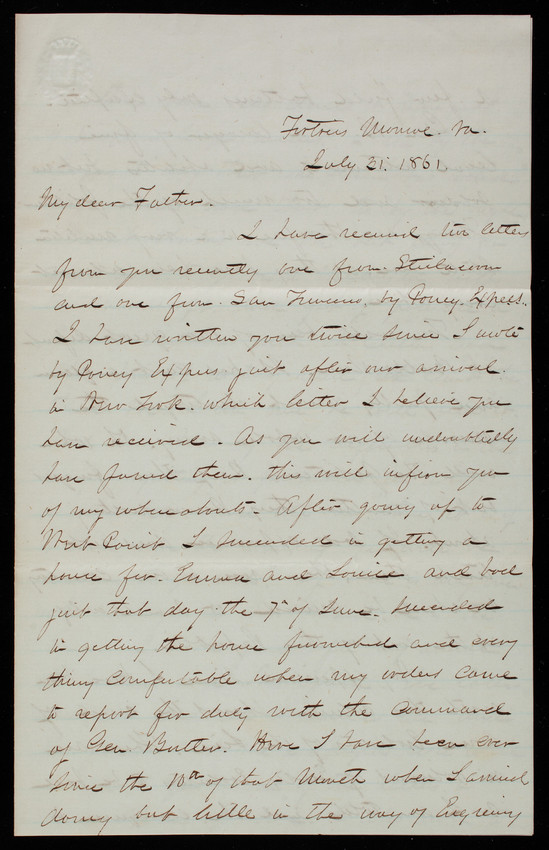 Fortress Monroe. Va.
July 21. 1861
My dear Father.
I have received two letters
from you recently one from. Steilacoom
and one from. San Francisco, by Poney. Express.
I have written you twice since I wrote
by Poney Express just after our arrival.
in New York. which letter I believe you
have received. As you will undoubtedly
have found them. this will inform you
of my whereabouts. After going up to
West Point I succeeded in getting a
house for. Emma and Louise and had
just that day the 7th of June. succeeded
in getting the house furnished and every
thing comfortable when my orders came
to report for duty with the command
of Gen. Butler. Here I have been ever
since the 10th of that Month when I arrived
doing but little in the way of